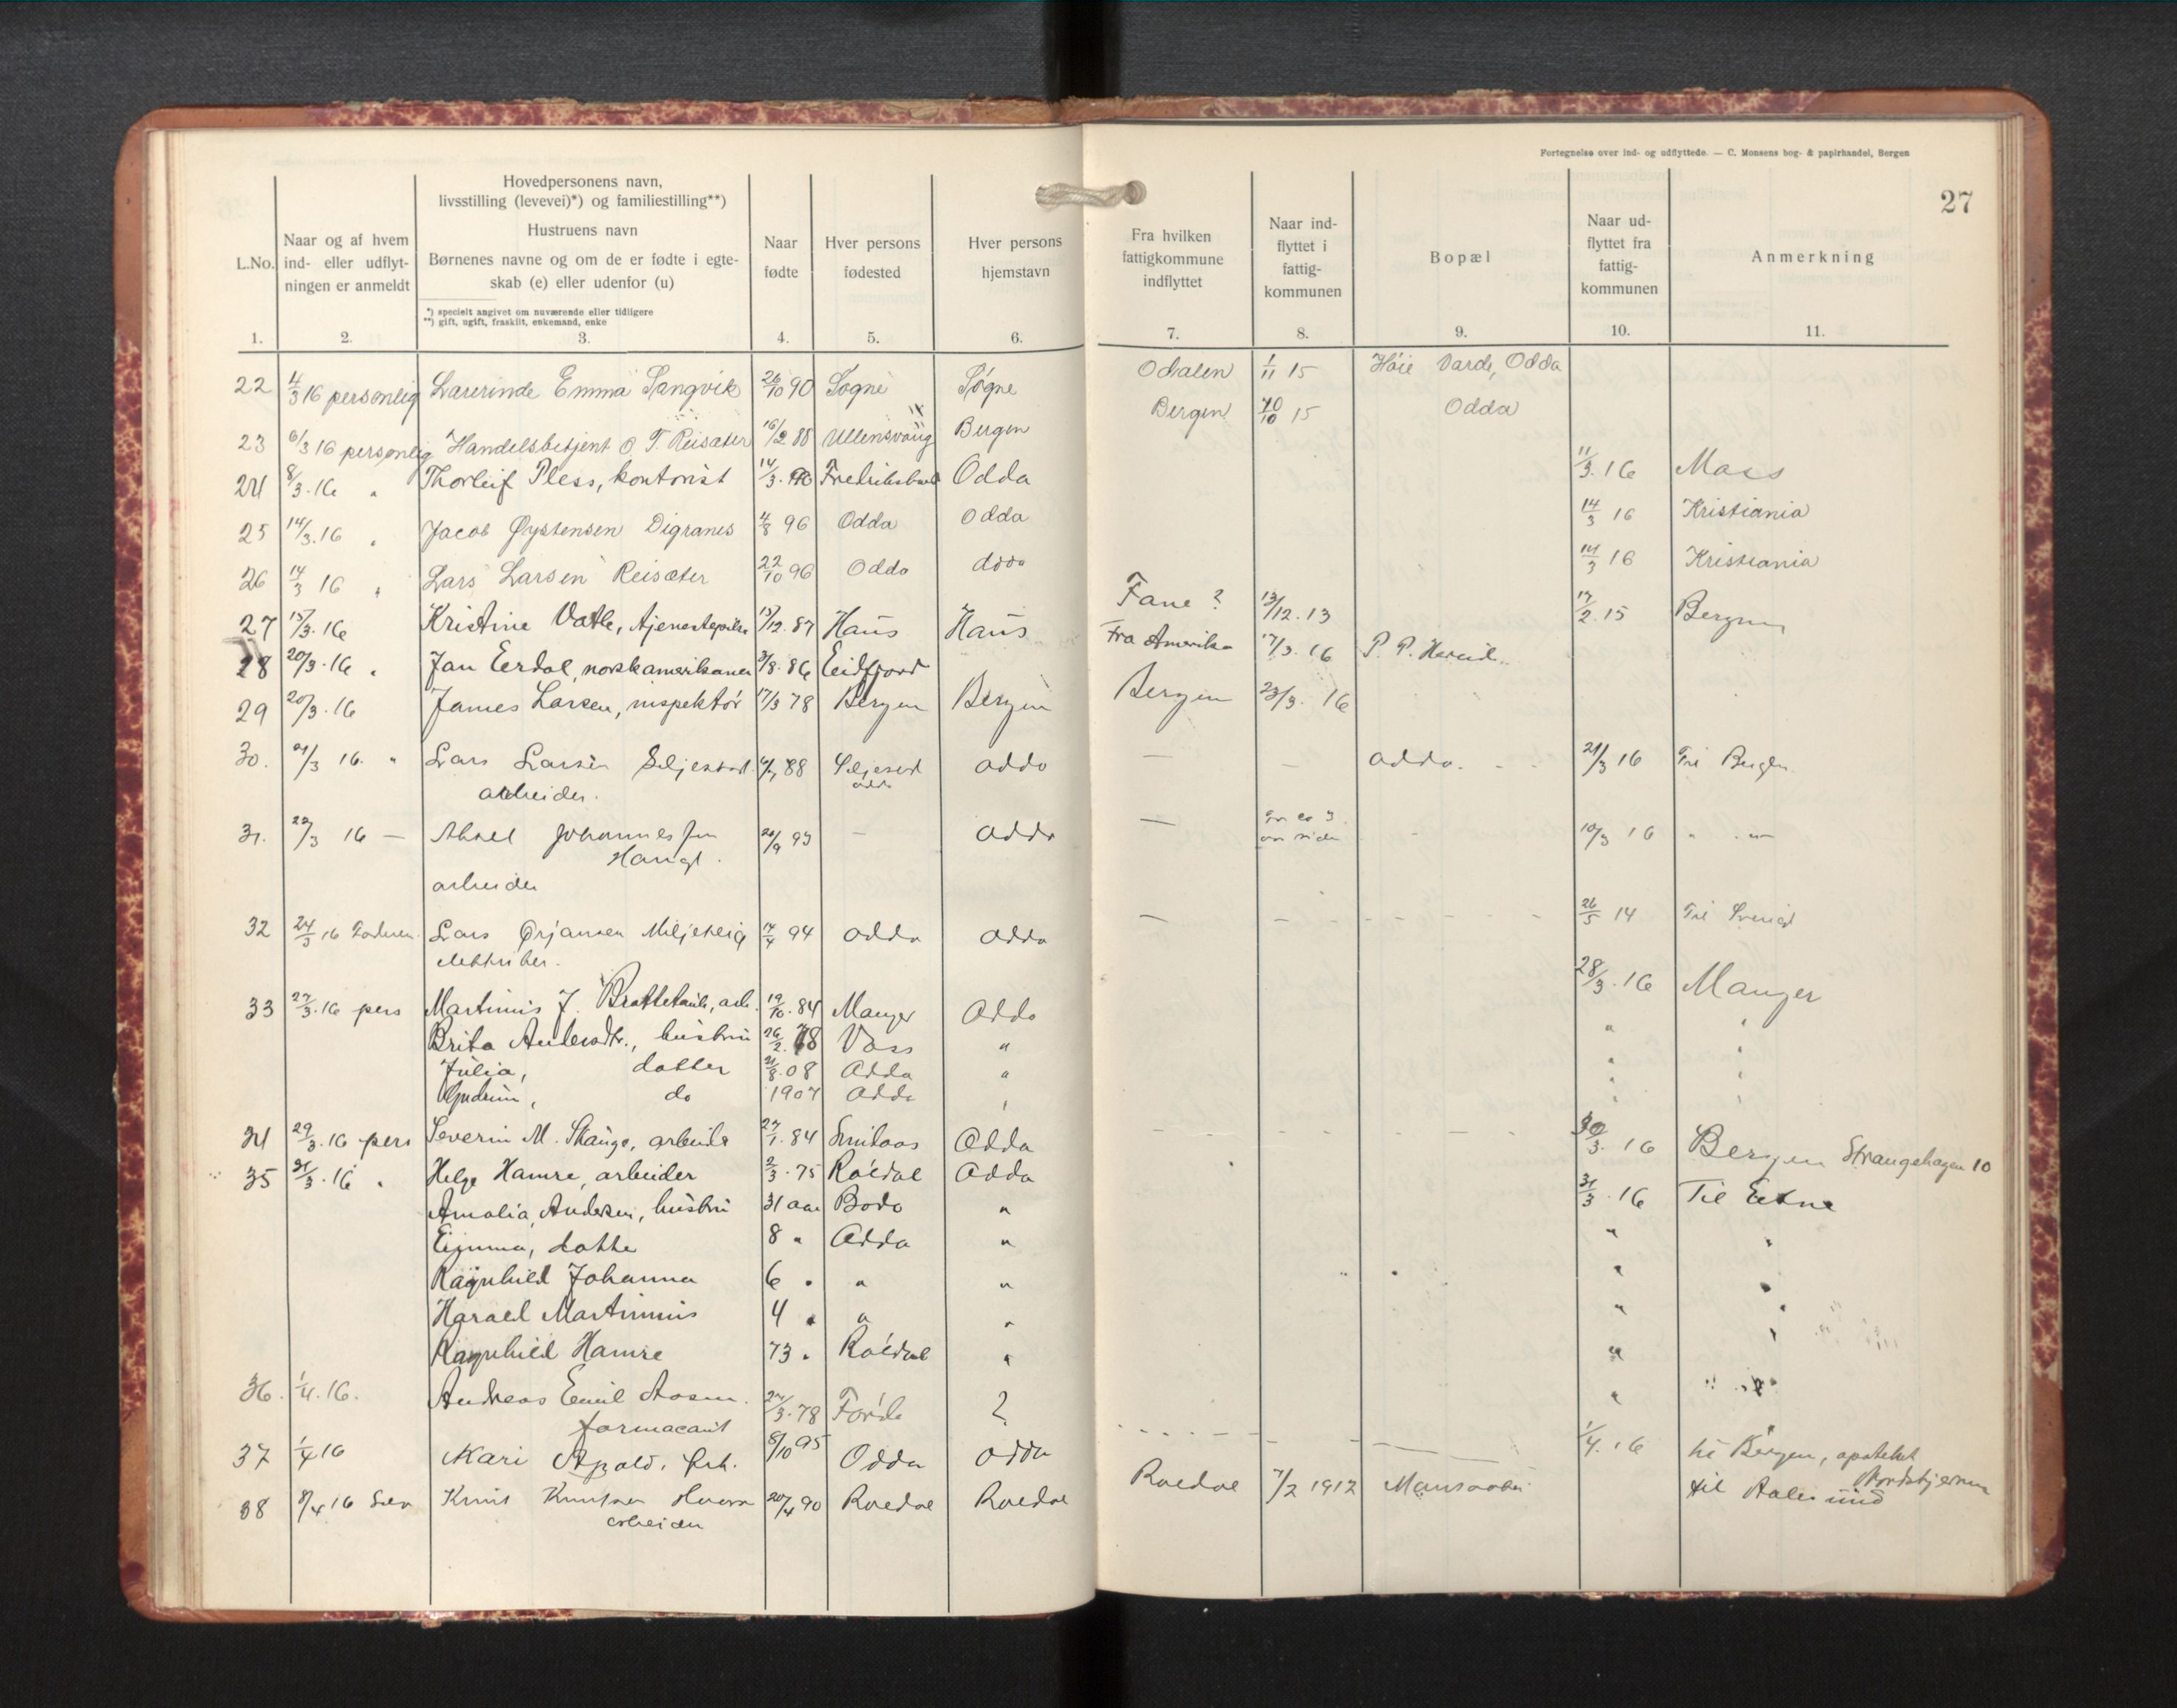 Fortegnelse over ind- og udflyttede. — C. Monsens bog- & papirhandel, Bergen
27
L.No.
Naar og af hvem ind- eller udflyt-ningen er anmeldt
Hovedpersonens navn,
livsstilling (levevei)*) og familiestilling**)
Hustruens navn
Børnenes navne og om de er fødte i egte-
skab (e) eller udenfor (u)
*) specielt angivet om nuværende eller tidligere
**) gift, ugift, fraskilt, enkemand, enke
Naar fødte
Hver persons fødested
Hver persons hjemstavn
Fra hvilken fattigkommune indflyttet
Naar ind-flyttet i fattig-kommunen
Bopæl
Naar ud-flyttet fra fattig-kommunen
Anmerkning
1. 2. 3. 4. 5. 6. 7. 8. 9. 10. 11.
22 4/3 16 personlig Lærerinde Emma Tangvik 26/10 90 Søgne Søgne Odalen 1/11 15 Høie Varde, Odda
23 6/3 16 personlig Handelsbetjent O. T. Reisæter 16/2 88 Ullensvang Bergen Bergen 10/10 15 Odda
24 8/3.16 " Thorleif Pless, kontorist 14/3. Odda 11/3.16 Moss
25 14/3.16 " Jacob Øystensen Digranes 4/8 96 Odda Odda 14/3 16 Kristiania
26 14/3 16 " Lars Larsen Reisæter 22/10 96 Odda dooo 14/3 16 Kristiania
27 15/3.16 Kristine Vatle, tjenestepike 15/12.87 Haus Haus Fane ? 13/12.13 17/2.15 Bergen
28 20/3.16 " Jan Eerdal, norskamerikaner 3/8.86 Eidfjord Fra Amerika 17/3.16 P. P. Hereid
29 20/3.16 James Larsen, inspektør 17/3 78 Bergen Bergen Bergen 23/3. 16
30. 21/3 16. " Lars Larsen Seljestad 88 Seljestad Odda — — Odda. 21/3 16 Til Bergen
arbeider. Odda
31. 22/3 16 — Johannessen 20/9 93 — Odda — 10/3 16 " "
arbeider
32 24/3 16 Faderen Lars Ørjansen 17/4 94 Odda Odda — 26/5 14 Til
elektriker.
33 27/3.16 pers Martinus J. arb. 19/10.84 Manger Odda 28/3.16 Manger
Brita Andersdtr., hustru 26/2. 78 Voss " " "
Julia, datter 21/8.08 Odda " " "
Gudrun, do 1907 Odda " " "
34 29/3.16 pers Severin M. Skauge, arbeider 27/1.84 Odda 30/3.16 Bergen Strangehagen 10
35 31/3.16 " Helge Hamre, arbeider 2/3.75 Røldal Odda 31/3.16 Til Etne
Amalia Andersen, hustru 31 aar Bodø " " "
datter 8 " Odda " " "
Ragnhild Johanna 6 " " " " "
Harald Martinius 4 " " " " "
Ragnhild Hamre 73 " Røldal " " "
36. 1/4.16. Andreas Emil 27/3.78 Førde ? 1/4.16 til Bergen, apoteket
farmaceut Nordstjernen
37 1/4 16 Kari Apold, frk. 8/10 95 Odda Odda til Aalesund
38 8/4 16 Selv Knut Knutsen 20/4 90 Roedal Roedal Roedal 7/2 1912
arbeider